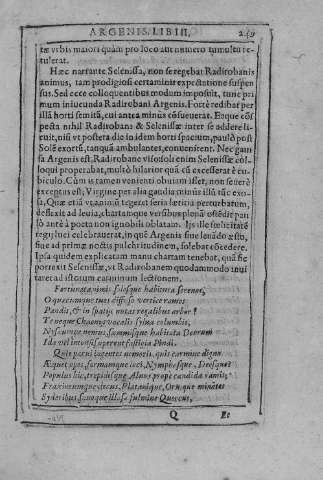 ARGENIS. LIB III. 249
tæ vrbis maiori quàm pro loco aut numero tumultu re-
tulerat.
Hæc narrante Selenissa, non se regebat Radirobanis
animus, tam prodigiosi certaminis expectatione suspen-
sus. Sed ecce colloquentibus modum imposuit, tunc pri
mum iniucunda Radirobani Argenis. Fortè redibat per
illâ horti semitâ, cui antea minùs cõsueuerat. Eoque cõs
pecta nihil Radirobano & Selenissæ inter se addere li-
cuit, nisi vt postera die in idem horti spatium, paulò post
Solẽ exortũ, tanquã ambulantes, conuenirent. Nec gaui
sa Argenis est, Radirobane viso solẽ enim Selenissæ col-
loqui properabat, multò hilarior quâ cũ excesserat è cu-
biculo. Cùm is tamen venienti obuiam isset, non seuerè
exceptus est; Virgine per alia gaudia minùs illâ tũc exo-
sa. Quæ etiã vt animũ tegeret seria lætitia perturbatum,
deflexit ad leuia, chartamque versibus plenã ostẽdit pau
lò antè à poeta non ignobili oblatam. Ijs ille fœlicitatẽ
regij luci celebrauerat, in quẽ Argenis siue leuãdo æstu,
siue ad primæ noctis pulchritudinem, solebat cõcedere.
Ipsa quidem explicatam manu chartam tenebat, quã sic
porrexit Selenissæ, vt Radirobanem quodammodo inui
taret ad istorum carminum lectionem.
Fortunata nimis solosque habitura serenos,
O quæcumque tuos diffuso vertice ramos
Pandis, & in spatijs notas regalibus arbor!
Te neque Chaonijs vocalis sylua columbis,
Nysæumque nemus, summisque habitata Deorum
Ida vel intonsi superent fastigia Pindi.
Quis porrò ingentes nemoris, quis carmine digno
Æquet opes, formamque loci, Nymphasque, Deosque?
Populus hîc, trepidisque Alnus propè candida ramis,
Fraxineumque decus, Platanique, Ornique minantes
Syderibus, sæuoque illæsa fulmine Quercus,
Q Et